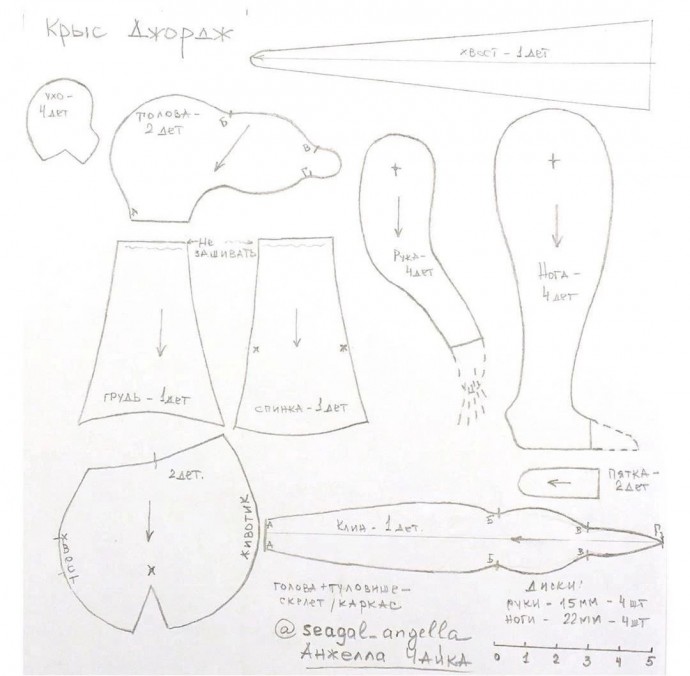 Крыс Джордж
хвост - 1дет
ухо-
4дет
голова-
2 дет
Б
В
Г
А
Не
зашивать
Рука-
4дет
Нога-
4дет
грудь - 1дет
х
х
спинка - 1дет
2дет.
хвост
животик
х
Пятка-
2дет
А
А
Клин - 1дет.
Б
Б
В
В
Г
голова+туловище-
скелет/каркас
Диски:
руки - 15мм - 4шт
ноги - 22мм - 4шт
@seagal_angella
Анжелла Чайка
0 1 2 3 4 5